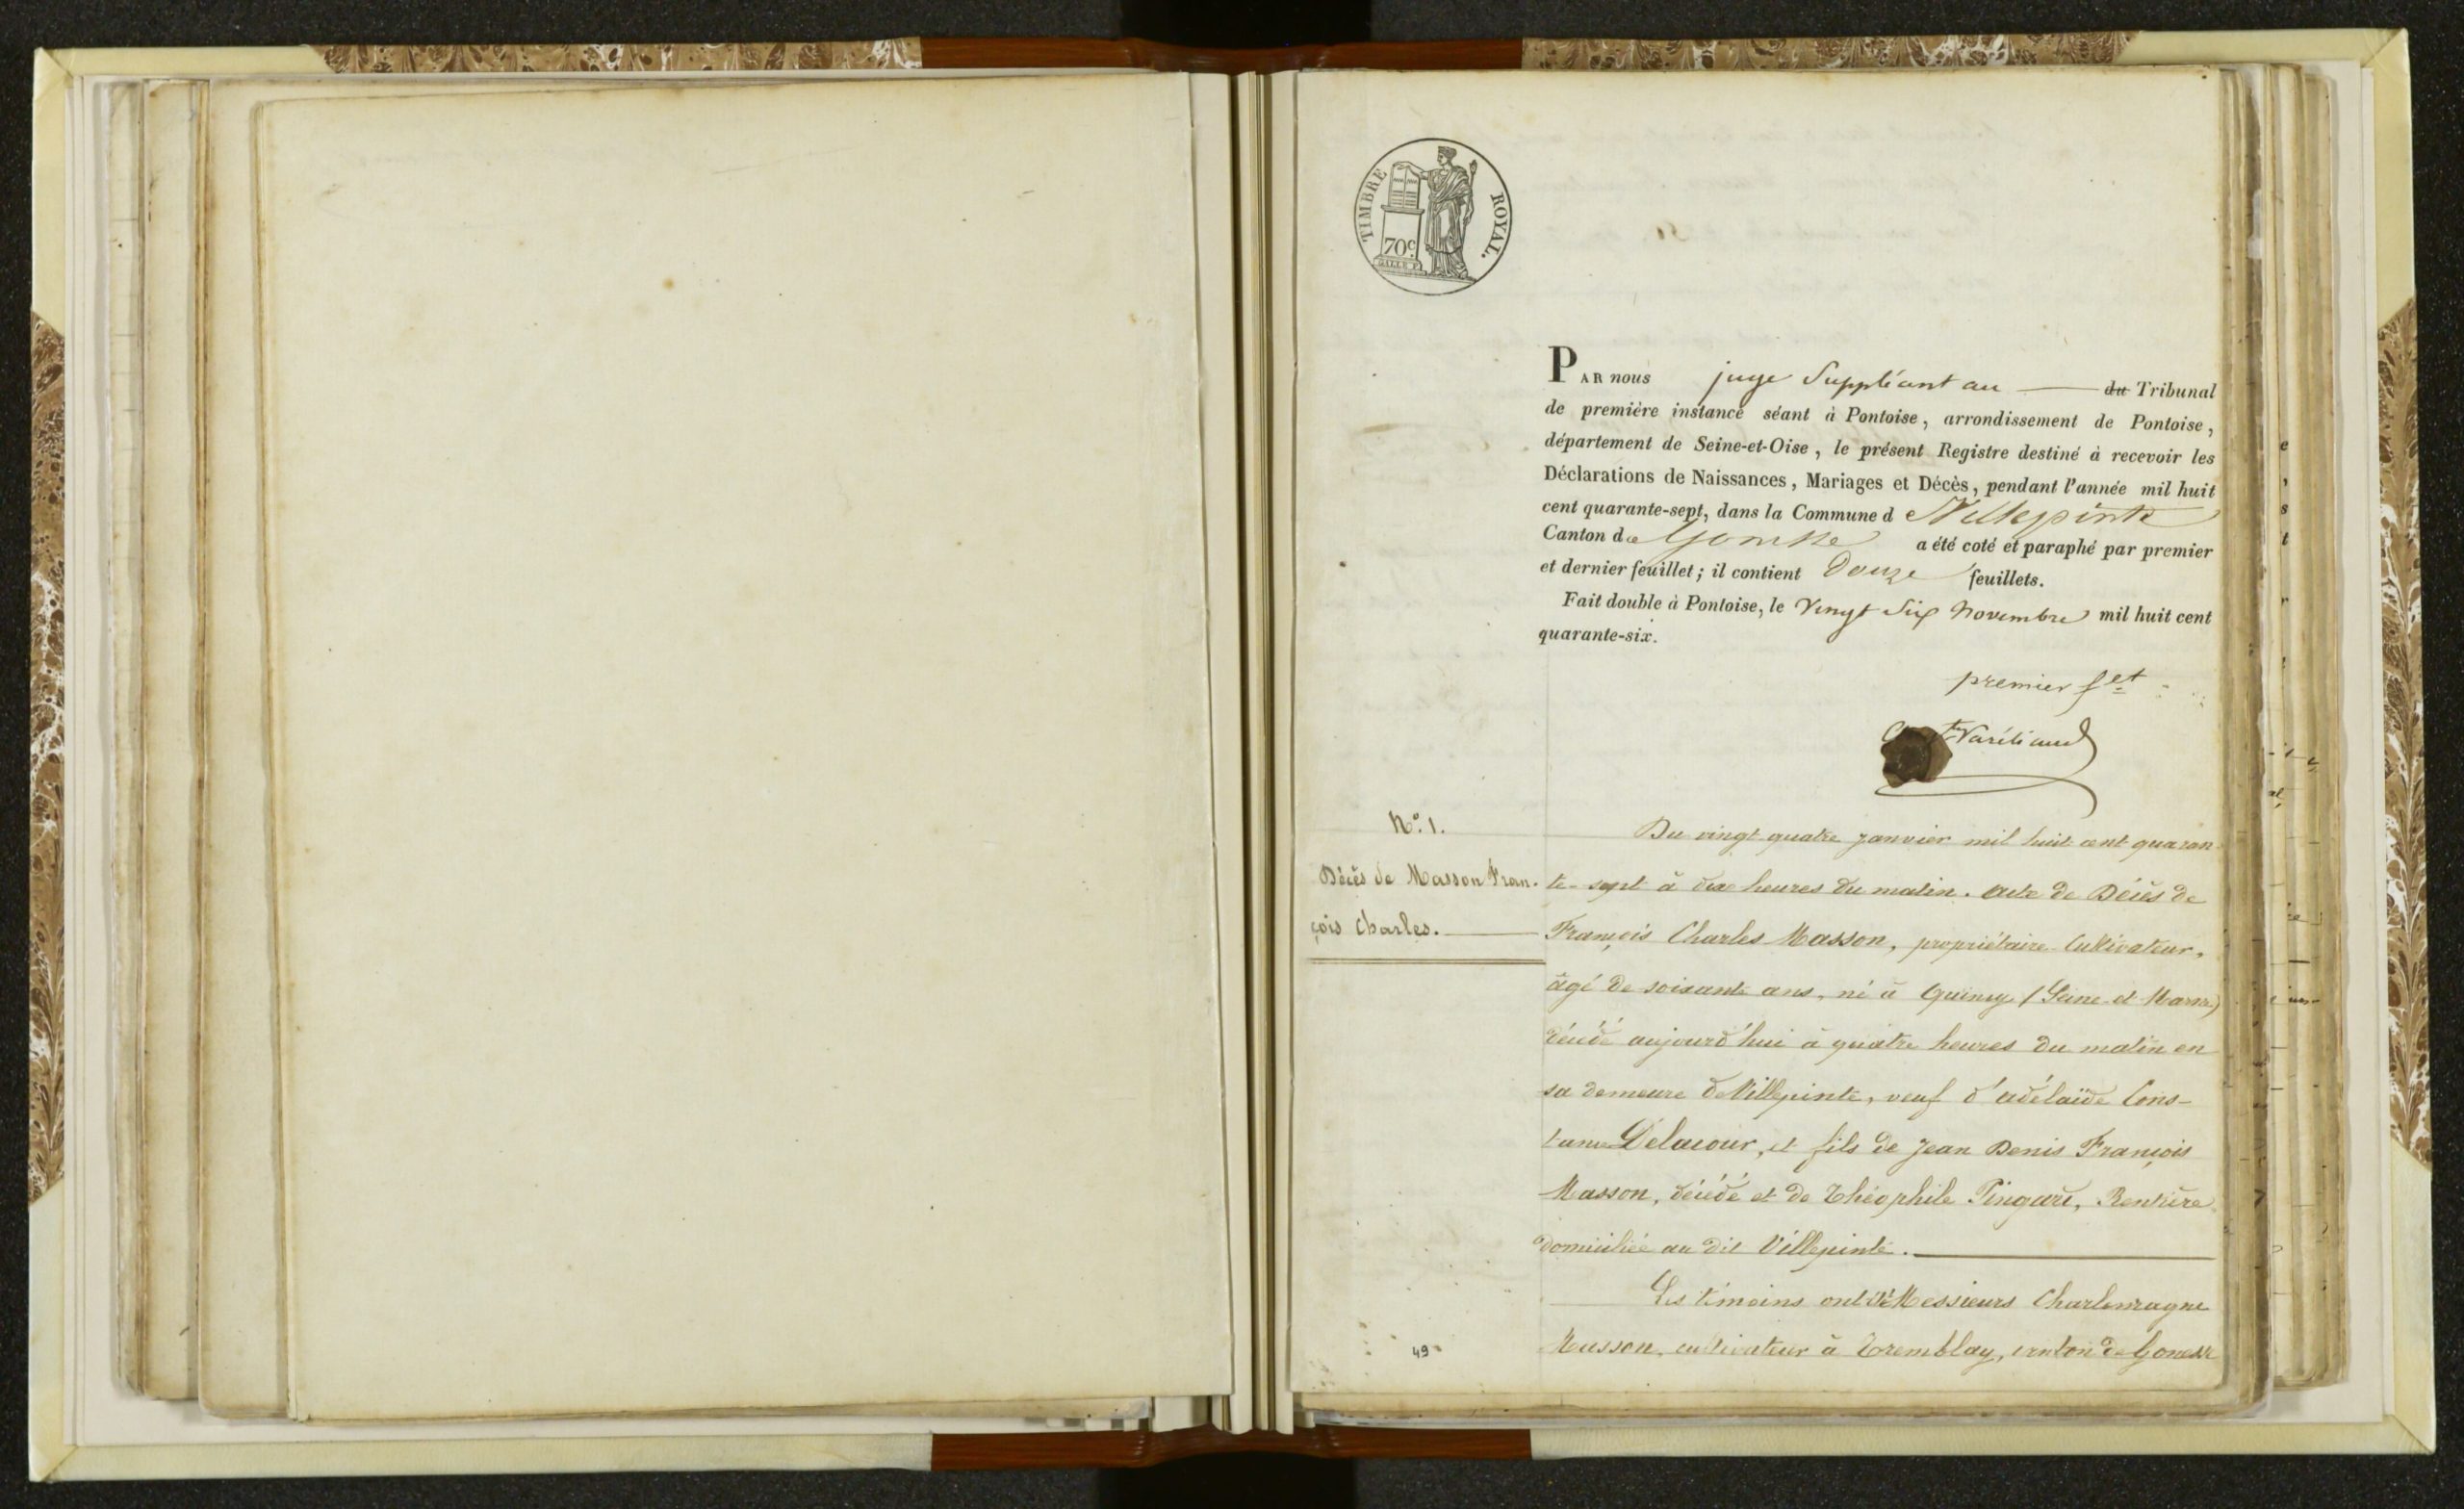 TIMBRE ROYAL.
70c.
PAR nous juge Suppléant au du Tribunal
de première instance séant à Pontoise, arrondissement de Pontoise,
département de Seine-et-Oise, le présent Registre destiné à recevoir les
Déclarations de Naissances, Mariages et Décès, pendant l'année mil huit
cent quarante-sept, dans la Commune d e Villepinte
Canton de Gonesse a été coté et paraphé par premier
et dernier feuillet; il contient Douze feuillets.
Fait double à Pontoise, le Vingt Six Novembre mil huit cent
quarante-six.
premier fet
No. 1.
Décès de Masson Fran-
çois Charles.
Du vingt quatre janvier mil huit cent quaran-
te-sept à dix heures du matin. acte de Décès de
François Charles Masson, propriétaire Cultivateur,
âgé de soixante ans, né à Quincy (Seine et Marne)
décédé aujourd'hui à quatre heures du matin en
sa demeure de Villepinte, veuf d'adélaïde Cons-
tance Delacour, et fils de Jean Denis François
Masson, décédé et de Théophile Pingard, Rentière
domiciliée au dit Villepinte.
Les témoins ont été Messieurs Charlemagne
Masson, cultivateur à Tremblay, canton de Gonesse
49